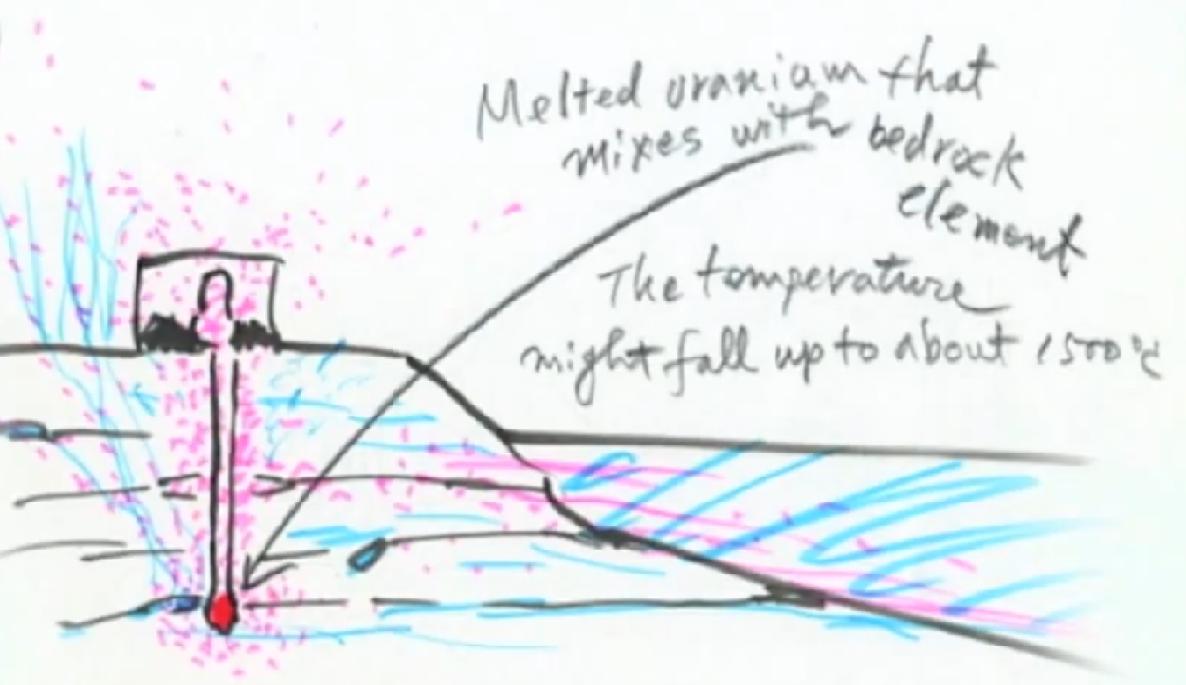 Melted uranium that
mixes with bedrock
element
The temperature
might fall up to about 1500℃